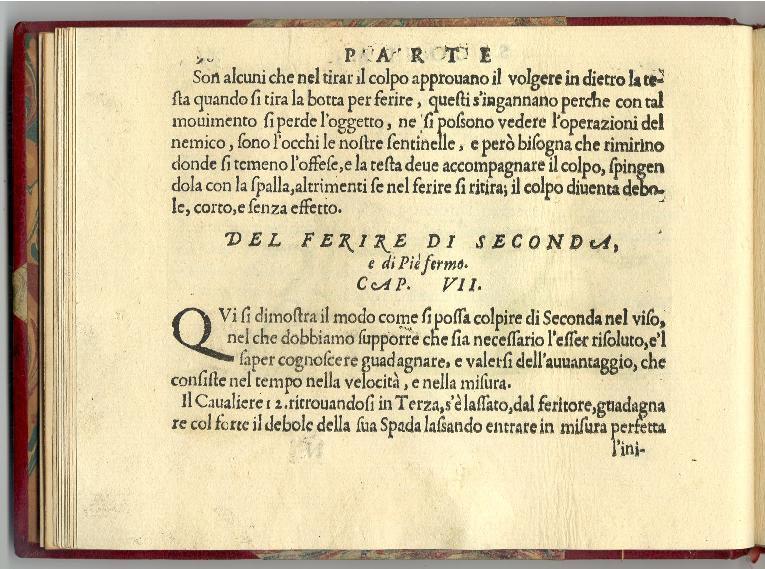 PARTE
Son alcuni che nel tirar il colpo approuano il volgere in dietro la te-
ſta quando ſi tira la botta per ferire, queſti s'ingannano perche con tal
mouimento ſi perde l'oggetto, ne ſi poſsono vedere l'operazioni del
nemico, ſono l'occhi le noſtre ſentinelle, e però biſogna che rimirino
donde ſi temeno l'offeſe, e la teſta deue accompagnare il colpo, ſpingen
dola con la ſpalla, altrimenti ſe nel ferire ſi ritira; il colpo diuenta debo-
le, corto, e ſenza effetto.
DEL FERIRE DI SECONDA,
e di Piè fermo.
CAP. VII.
QVi ſi dimoſtra il modo come ſi poſſa colpire di Seconda nel viſo,
nel che dobbiamo ſupporre che ſia neceſſario l'eſſer riſoluto, e'l
ſaper cognoſcere guadagnare, e valerſi dell'auuantaggio, che
conſiſte nel tempo nella velocità, e nella miſura.
Il Caualiere 12. ritrouandoſi in Terza, s'è laſſato, dal feritore, guadagna
re col forte il debole della ſua Spada laſsando entrare in miſura perfetta
l'ini-